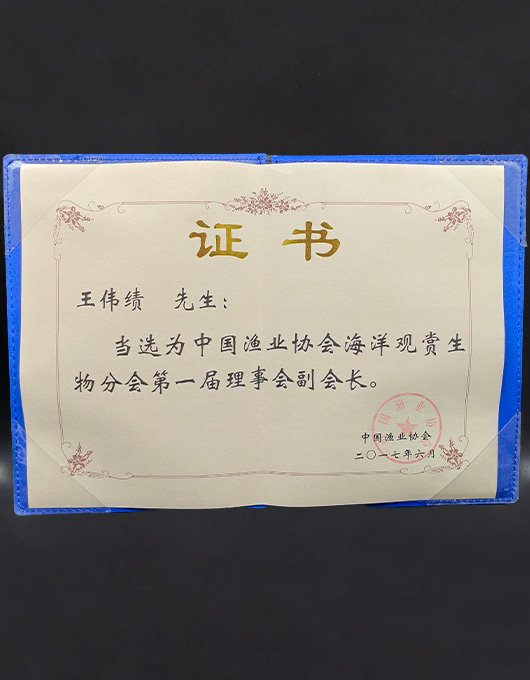 证书
王伟绩 先生：
当选为中国渔业协会海洋观赏生
物分会第一届理事会副会长。
中国渔业协会
二〇一七年六月